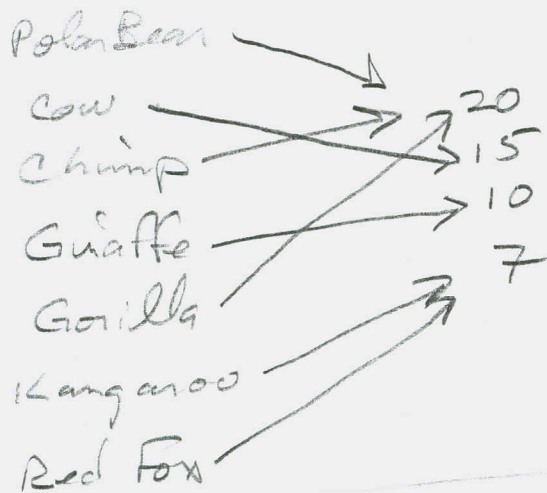 Polar Bear
Cow
Chimp
Giraffe
Gorilla
Kangaroo
Red Fox
20
15
10
7